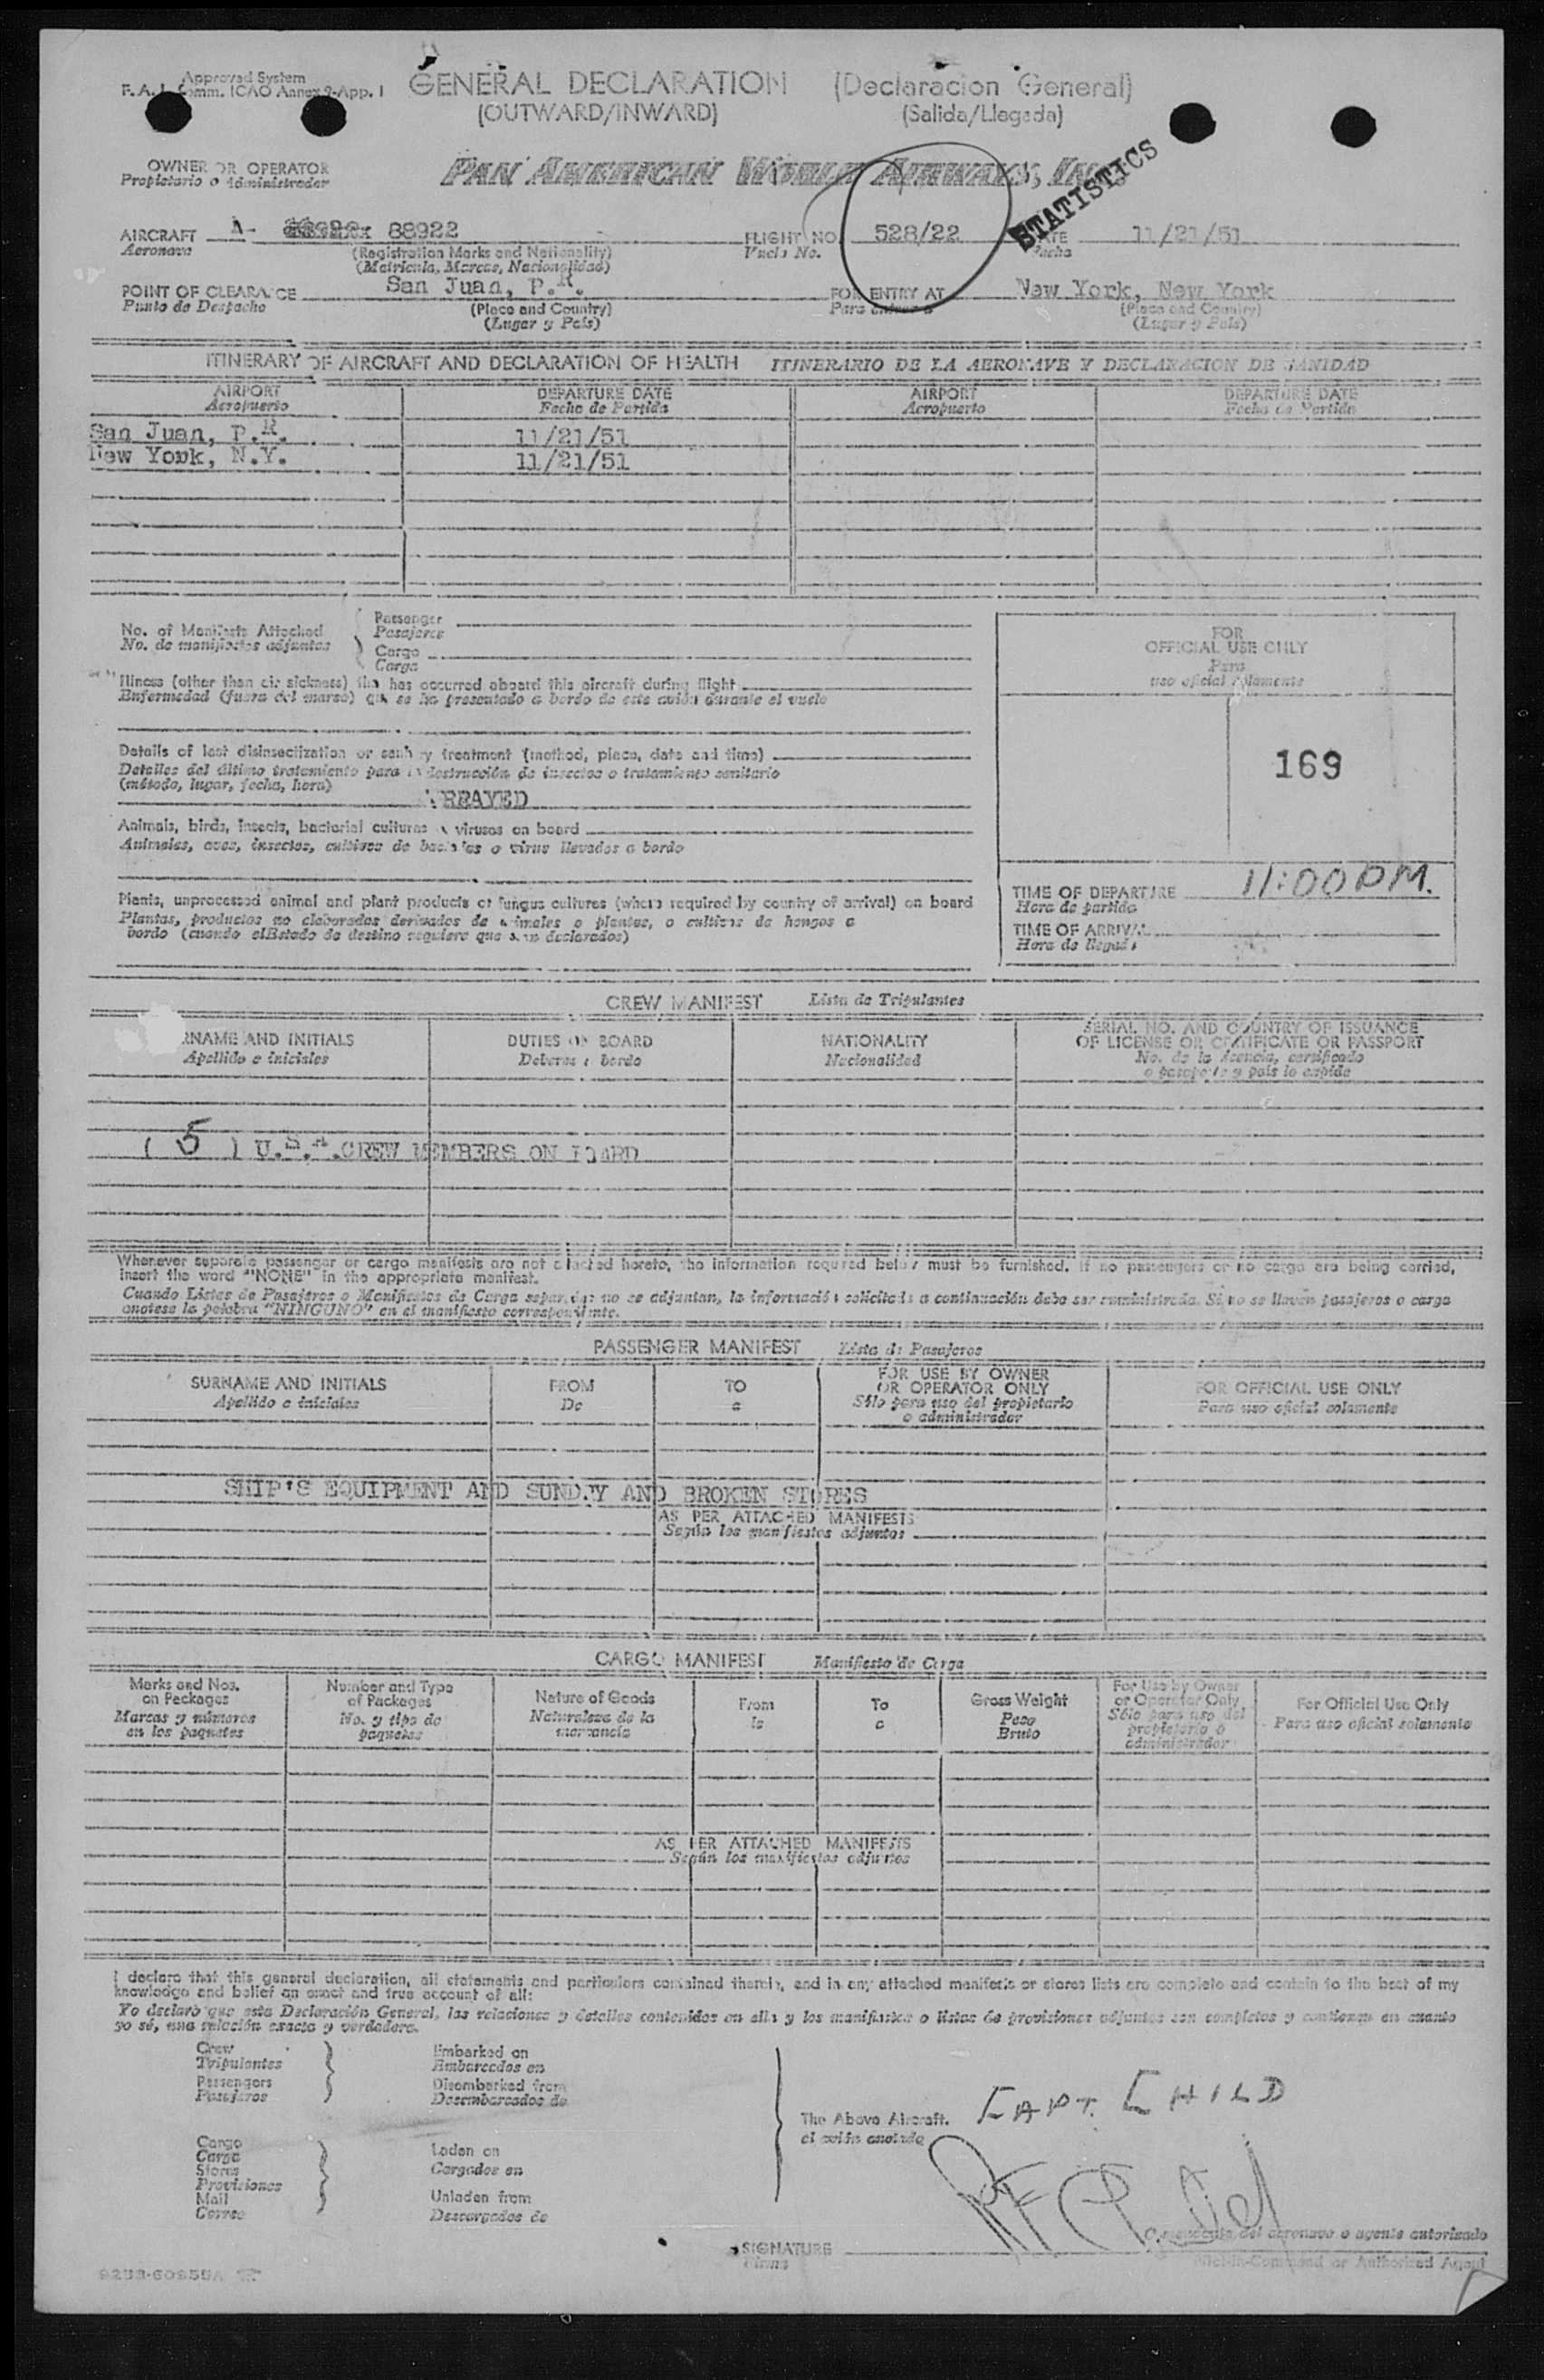 Approved System
F. A. L. Comm. ICAO Annex 9-App. I
GENERAL DECLARATION (Declaracion General)
(OUTWARD/INWARD) (Salida/Llegada)
OWNER OR OPERATOR
Propietario o Administrador
PAN AMERICAN WORLD AIRWAYS, INC.
STATISTICS
AIRCRAFT N- 88922 FLIGHT NO. 528/22 DATE 11/21/51
Aeronave (Registration Marks and Nationality) Vuelo No. Fecha
(Matricula, Marcas, Nacionalidad)
POINT OF CLEARANCE San Juan, P.R. FOR ENTRY AT New York, New York
Punto de Despacho (Place and Country) Para entrar a (Place and Country)
(Lugar y País) (Lugar y País)
ITINERARY OF AIRCRAFT AND DECLARATION OF HEALTH ITINERARIO DE LA AERONAVE Y DECLARACION DE SANIDAD
AIRPORT DEPARTURE DATE AIRPORT DEPARTURE DATE
Aeropuerto Fecha de Partida Aeropuerto Fecha de Partida
San Juan, P.R. 11/21/51
New York, N.Y. 11/21/51
No. of Manifests Attached
No. de manifiestos adjuntos
Passenger
Pasajeros
Cargo
Carga
FOR
OFFICIAL USE ONLY
Para
uso oficial solamente
Illness (other than air sickness) that has occurred aboard this aircraft during flight
Enfermedad (fuera del mareo) que se ha presentado a bordo de este avión durante el vuelo
Details of last disinsectization or sanitary treatment (method, place, date and time)
Detalles del último tratamiento para la destrucción de insectos o tratamiento sanitario
(método, lugar, fecha, hora)
169
Animals, birds, insects, bacterial cultures or viruses on board
Animales, aves, insectos, cultivos de bacterias o virus llevados a bordo
Plants, unprocessed animal and plant products or fungus cultures (where required by country of arrival) on board
Plantas, productos no elaborados derivados de animales o plantas, o cultivos de hongos a
bordo (cuando elEstado de destino requiere que sean declarados)
TIME OF DEPARTURE 11:00 PM.
Hora de partida
TIME OF ARRIVAL
Hora de llegada
CREW MANIFEST Lista de Tripulantes
RNAME AND INITIALS DUTIES ON BOARD NATIONALITY SERIAL NO. AND COUNTRY OF ISSUANCE
OF LICENSE OR CERTIFICATE OR PASSPORT
Apellido e iniciales Deberes a bordo Nacionalidad No. de la licencia, certificado
o pasaporte y país lo expide
( 5 ) U.S.A.CREW MEMBERS ON BOARD
Whenever separate passenger or cargo manifests are not attached hereto, the information required below must be furnished. If no passengers or no cargo are being carried,
insert the word "NONE" in the appropriate manifest.
Cuando Listas de Pasajeros o Manifiestos de Carga separadas no se adjuntan, la información solicitada a continuación debe ser suministrada. Si no se llevan pasajeros o carga
anotese la palabra "NINGUNO" en el manifiesto correspondiente.
PASSENGER MANIFEST Lista de Pasajeros
SURNAME AND INITIALS FROM TO FOR USE BY OWNER
OR OPERATOR ONLY FOR OFFICIAL USE ONLY
Apellido e iniciales De a Sólo para uso del propietario
o administrador Para uso oficial solamente
SHIP'S EQUIPMENT AND SUNDRY AND BROKEN STORES
AS PER ATTACHED MANIFESTS
Según los manifiestos adjuntos
CARGO MANIFEST Manifiesto de Carga
Marks and Nos.
on Packages
Marcas y números
en los paquetes
Number and Type
of Packages
No. y tipo de
paquetes
Nature of Goods
Naturaleza de la
mercancía
From
To
a
Gross Weight
Peso
Bruto
For Use by Owner
or Operator Only
Sólo para uso del
propietario o
administrador
For Official Use Only
Para uso oficial solamente
AS PER ATTACHED MANIFESTS
Según los manifiestos adjuntos
I declare that this general declaration, all statements and particulars contained therein, and in any attached manifests or stores lists are complete and contain to the best of my
knowledge and belief an exact and true account of all:
Yo declaro que esta Declaración General, las relaciones y detalles contenidos en ella y los manifiestos o listas de provisiones adjuntos son completos y contienen en cuanto
yo sé, una relación exacta y verdadera.
Crew
Tripulantes
Passengers
Pasajeros
Embarked on
Embarcados en
Disembarked from
Desembarcados de
Cargo
Carga
Stores
Provisiones
Mail
Correo
Laden on
Cargados en
Unladen from
Descargados de
The Above Aircraft.
el avión anotado
CAPT. CHILD
del aeronave o agente autorizado
SIGNATURE
Firma
Pilot-in-Command or Authorized Agent